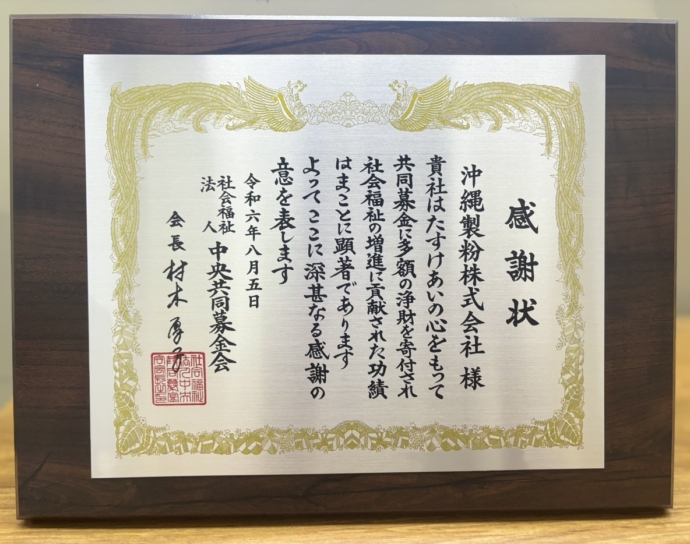 感謝状
沖縄製粉株式会社 様
貴社はたすけあいの心をもって
共同募金に多額の浄財を寄付され
社会福祉の増進に貢献された功績
はまことに顕著であります
よってここに深甚なる感謝の
意を表します
令和六年八月五日
社会福祉法人 中央共同募金会
会長 村木厚子